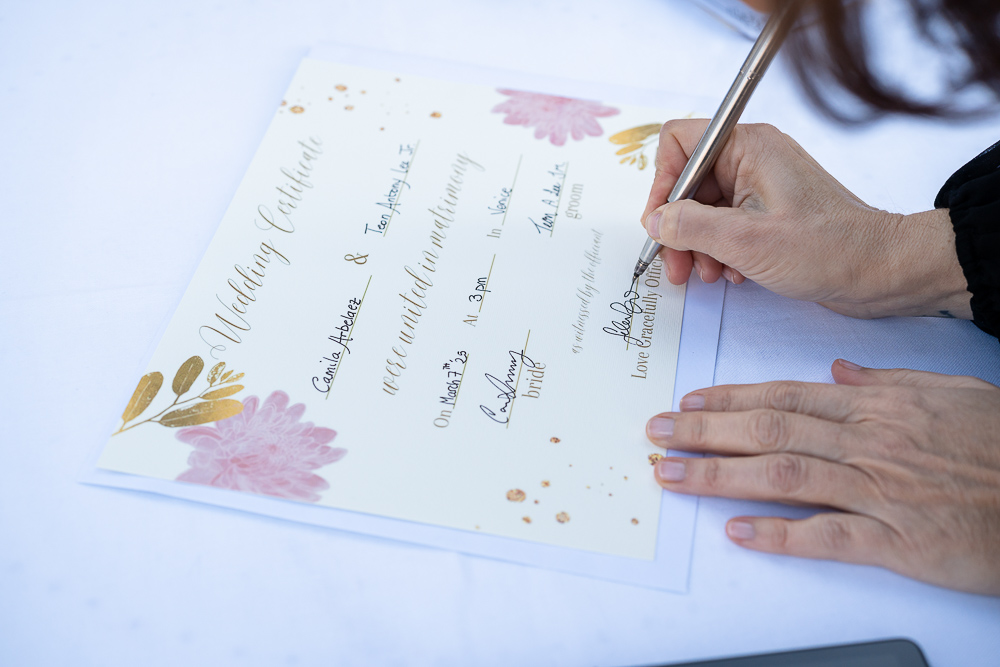 Wedding Certificate
Camila Arbelaez & Teon Antony Lee Jr
were united in matrimony
On March 7th, 25 At 3pm In Venice
bride groom
as witnessed by the officiant
Love Gracefully Offici